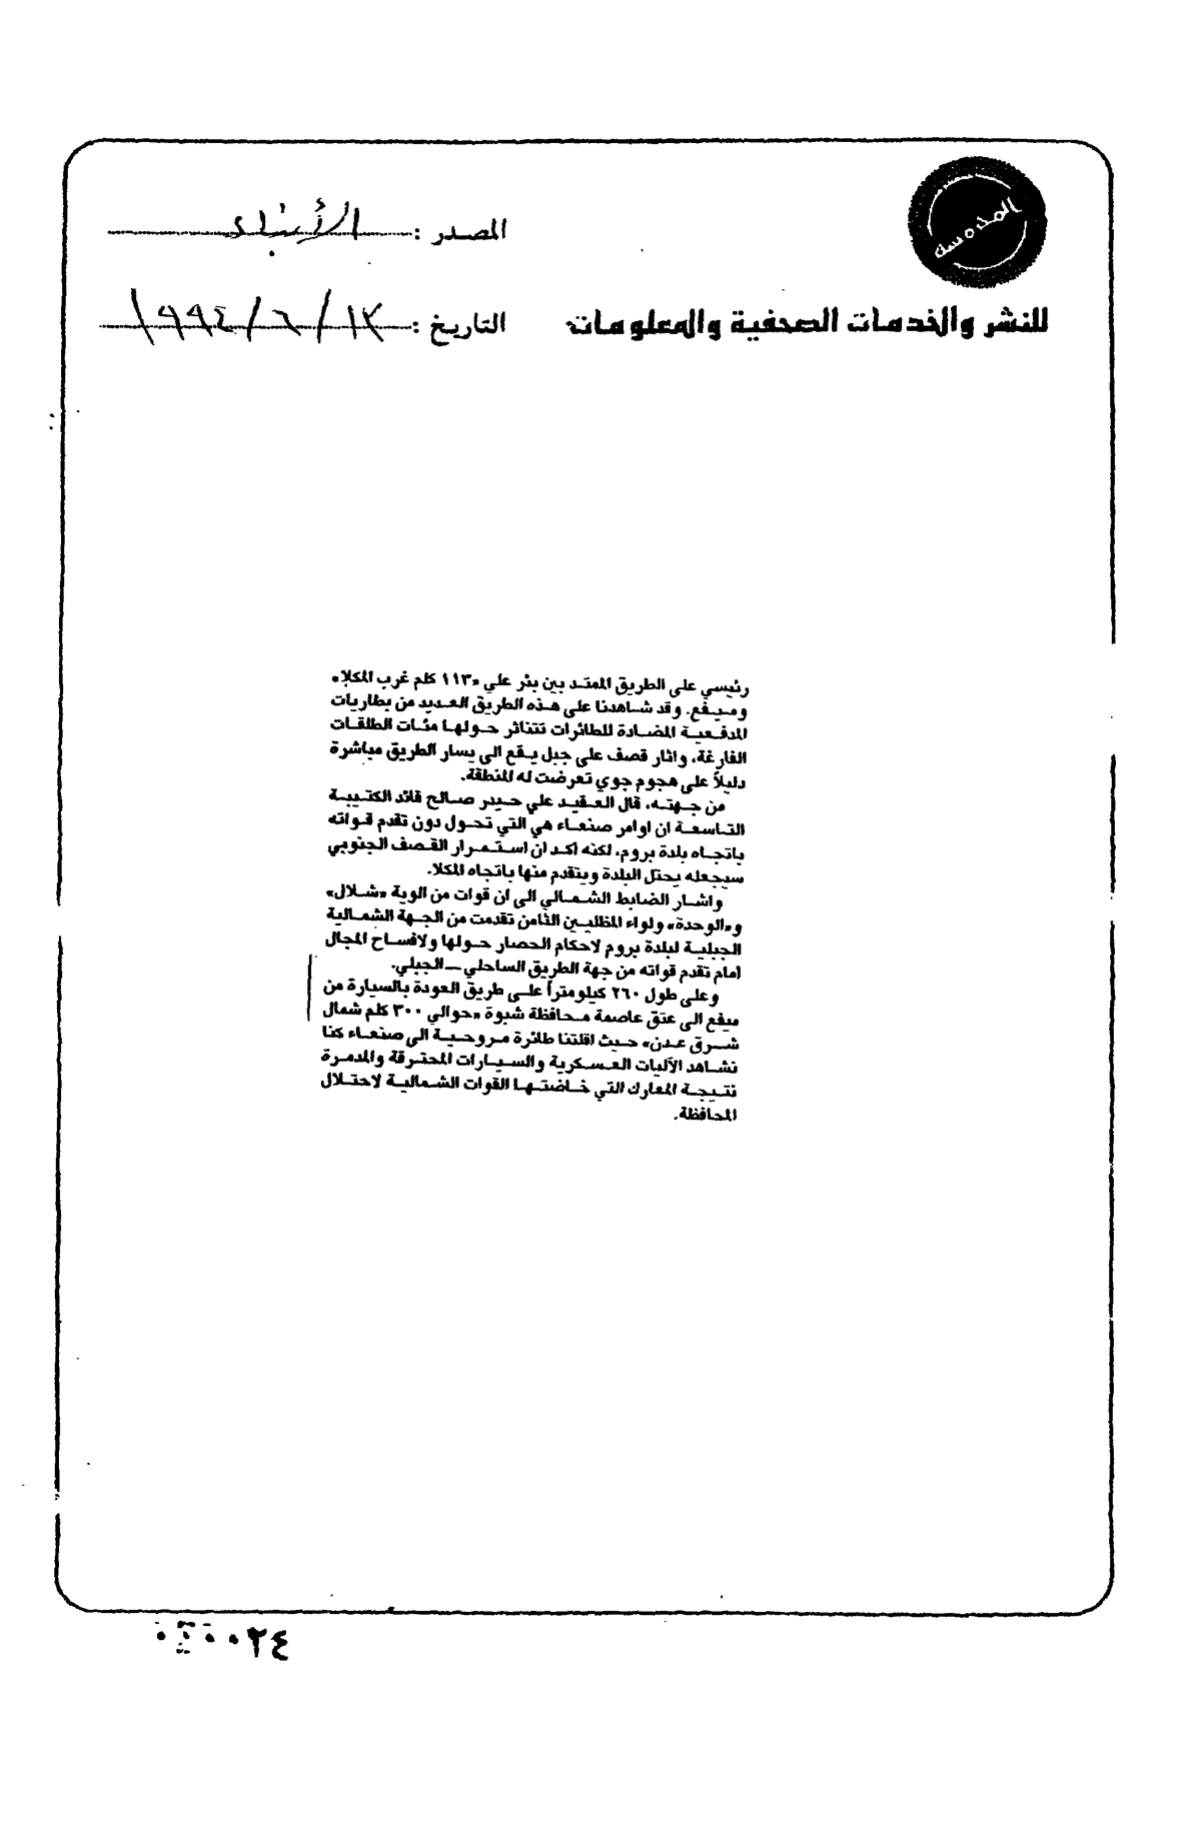 المصدر : الأنباء
للنشر والخدمات الصحفية والمعلومات
التاريخ : ١٣ / ٦ / ١٩٩٤
رئيسي على الطريق الممتد بين بئر علي «١١٣ كلم غرب المكلا»
وميفع. وقد شاهدنا على هذه الطريق العديد من بطاريات
المدفعية المضادة للطائرات تتناثر حولها مئات الطلقات
الفارغة، واثار قصف على جبل يقع الى يسار الطريق مباشرة
دليلاً على هجوم جوي تعرضت له المنطقة.
من جهته، قال العقيد علي حيدر صالح قائد الكتيبة
التاسعة ان اوامر صنعاء هي التي تحول دون تقدم قواته
باتجاه بلدة بروم، لكنه اكد ان استمرار القصف الجنوبي
سيجعله يحتل البلدة ويتقدم منها باتجاه المكلا.
واشار الضابط الشمالي الى ان قوات من الوية «شلال»
و«الوحدة» ولواء المظليين الثامن تقدمت من الجهة الشمالية
الجبلية لبلدة بروم لاحكام الحصار حولها ولافساح المجال
امام تقدم قواته من جهة الطريق الساحلي ـ الجبلي.
وعلى طول ٢٦٠ كيلومتراً على طريق العودة بالسيارة من
ميفع الى عتق عاصمة محافظة شبوة «حوالي ٣٠٠ كلم شمال
شرق عدن» حيث اقلتنا طائرة مروحية الى صنعاء كنا
نشاهد الآليات العسكرية والسيارات المحترقة والمدمرة
نتيجة المعارك التي خاضتها القوات الشمالية لاحتلال
المحافظة.